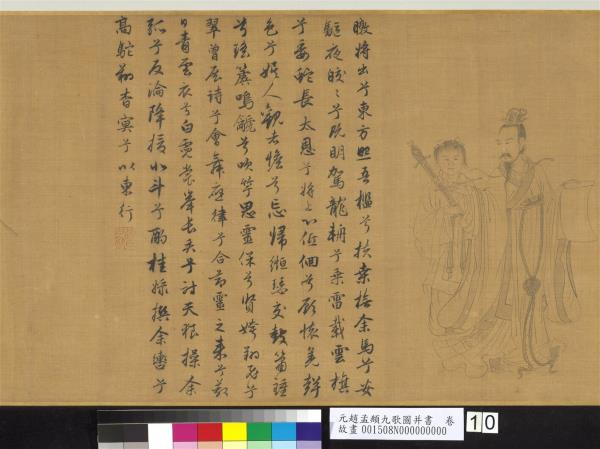 暾將出兮東方照吾檻兮扶桑撫余馬兮安
驅夜皎〻兮既明駕龍輈兮乘雷載雲旗
兮委蛇長太息兮將上心低佪兮顧懷羌聲
色兮娛人觀者憺兮忘歸緪瑟交鼓簫鍾
兮瑤簴鳴䶵兮吹竽思靈保兮賢姱翾飛兮
翠曾展詩兮會舞應律兮合節靈之來兮蔽
日青雲衣兮白霓裳舉長矢兮射天狼操余
弧兮反淪降援北斗兮酌桂漿撰余轡兮
高駝翔杳冥兮以東行
元趙孟頫九歌圖并書 卷
故畫 001508N000000000
10